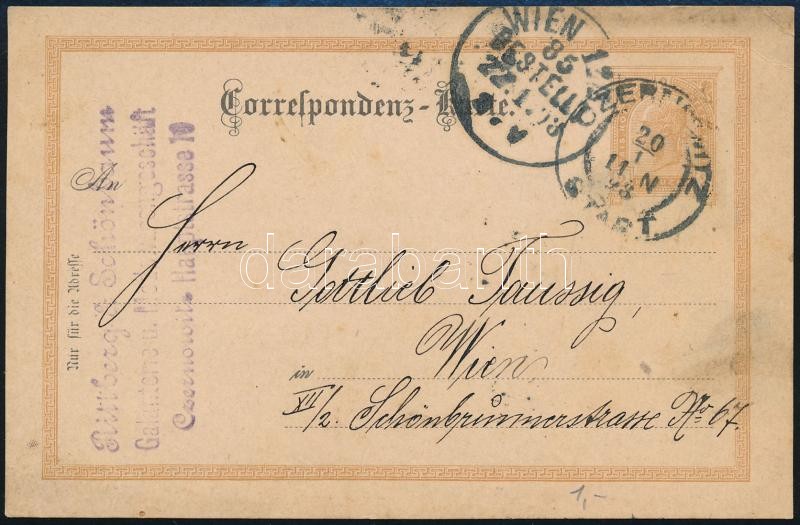 WIEN 1
85
BESTELLT
22.1.98
Correspondenz-Karte.
CZERNOWITZ
20
1
11 N
98
STADT
An
Herrn
Gottlieb Taussig,
in Wien,
XII/2. Schönbrunnerstrasse No 67.
Nur für die Adresse
Schönbaum
Galanterie u.
Czernowitz Hauptstrasse 10
darabanth
1,-